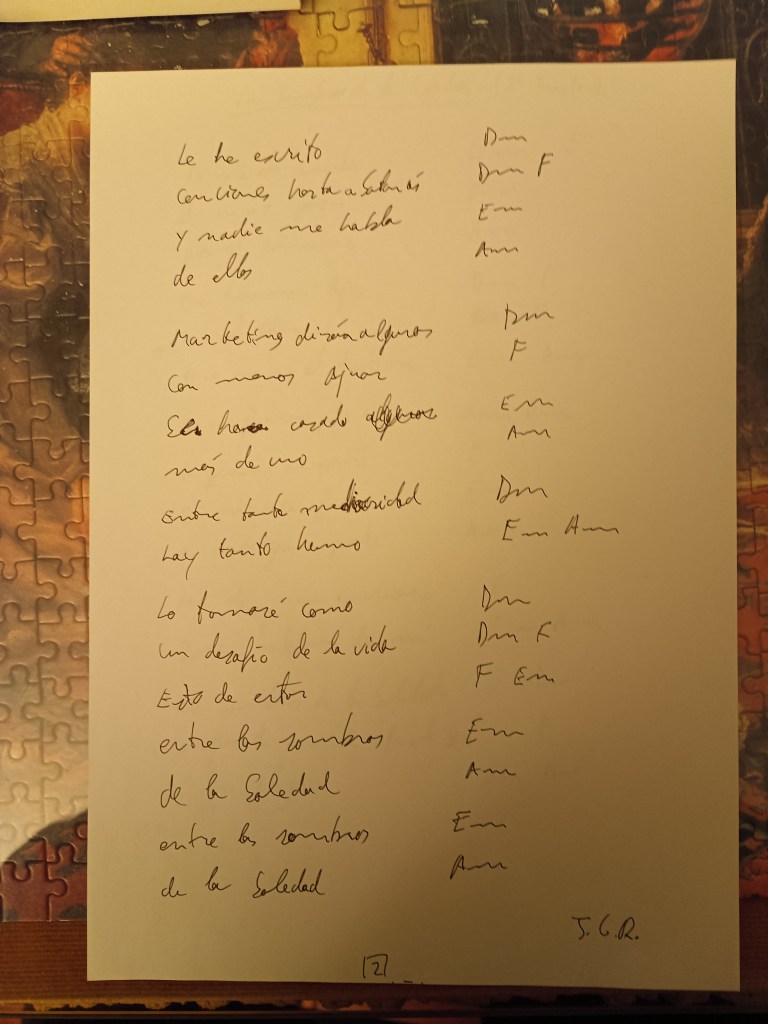 Le he escrito Dm
Canciones hasta a Satanás Dm F
Y nadie me habla Em
de ellas Am
Marketing dirán algunos Dm
Con menos ajuar F
Se han casado Em
más de uno Am
Entre tanta mediocridad Dm
hay tanto humo Em Am
Lo tomaré como Dm
un desafío de la vida Dm F
Esto de estar F Em
entre las sombras Em
de la Soledad Am
entre las sombras Em
de la Soledad Am
J.G.R.
2